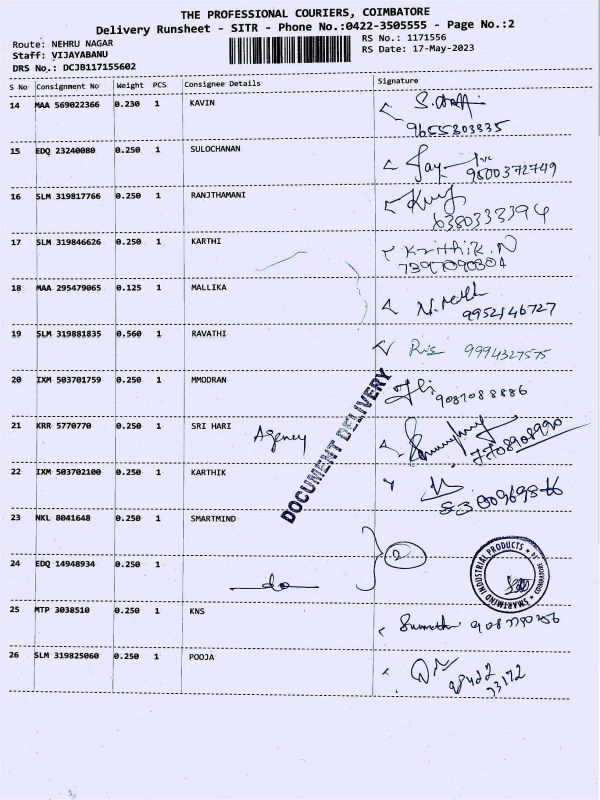 THE PROFESSIONAL COURIERS, COIMBATORE
Delivery Runsheet - SITR - Phone No.:0422-3505555 - Page No.:2
Route: NEHRU NAGAR
RS No.: 1171556
Staff: VIJAYABANU
RS Date: 17-May-2023
DRS No.: DCJB117155602
S No Consignment No Weight PCS Consignee Details Signature
14 MAA 569022366 0.230 1 KAVIN
9655803835
15 EDQ 23240080 0.250 1 SULOCHANAN
Jay
9500372749
16 SLM 319817766 0.250 1 RANJTHAMANI
6380333394
17 SLM 319846626 0.250 1 KARTHI
Krithik.N
7397090304
18 MAA 295479065 0.125 1 MALLIKA
9952146727
19 SLM 319881835 0.560 1 RAVATHI
9994327575
20 IXM 503701759 0.250 1 MMODRAN
9087088886
21 KRR 5770770 0.250 1 SRI HARI Agency
7708908990
DOCUMENT DELIVERY
22 IXM 503702100 0.250 1 KARTHIK
23 NKL 8041648 0.250 1 SMARTMIND
2
SMARTMIND INDUSTRIAL PRODUCTS
24 EDQ 14948934 0.250 1 do
25 MTP 3038510 0.250 1 KNS
26 SLM 319825060 0.250 1 POOJA
73172